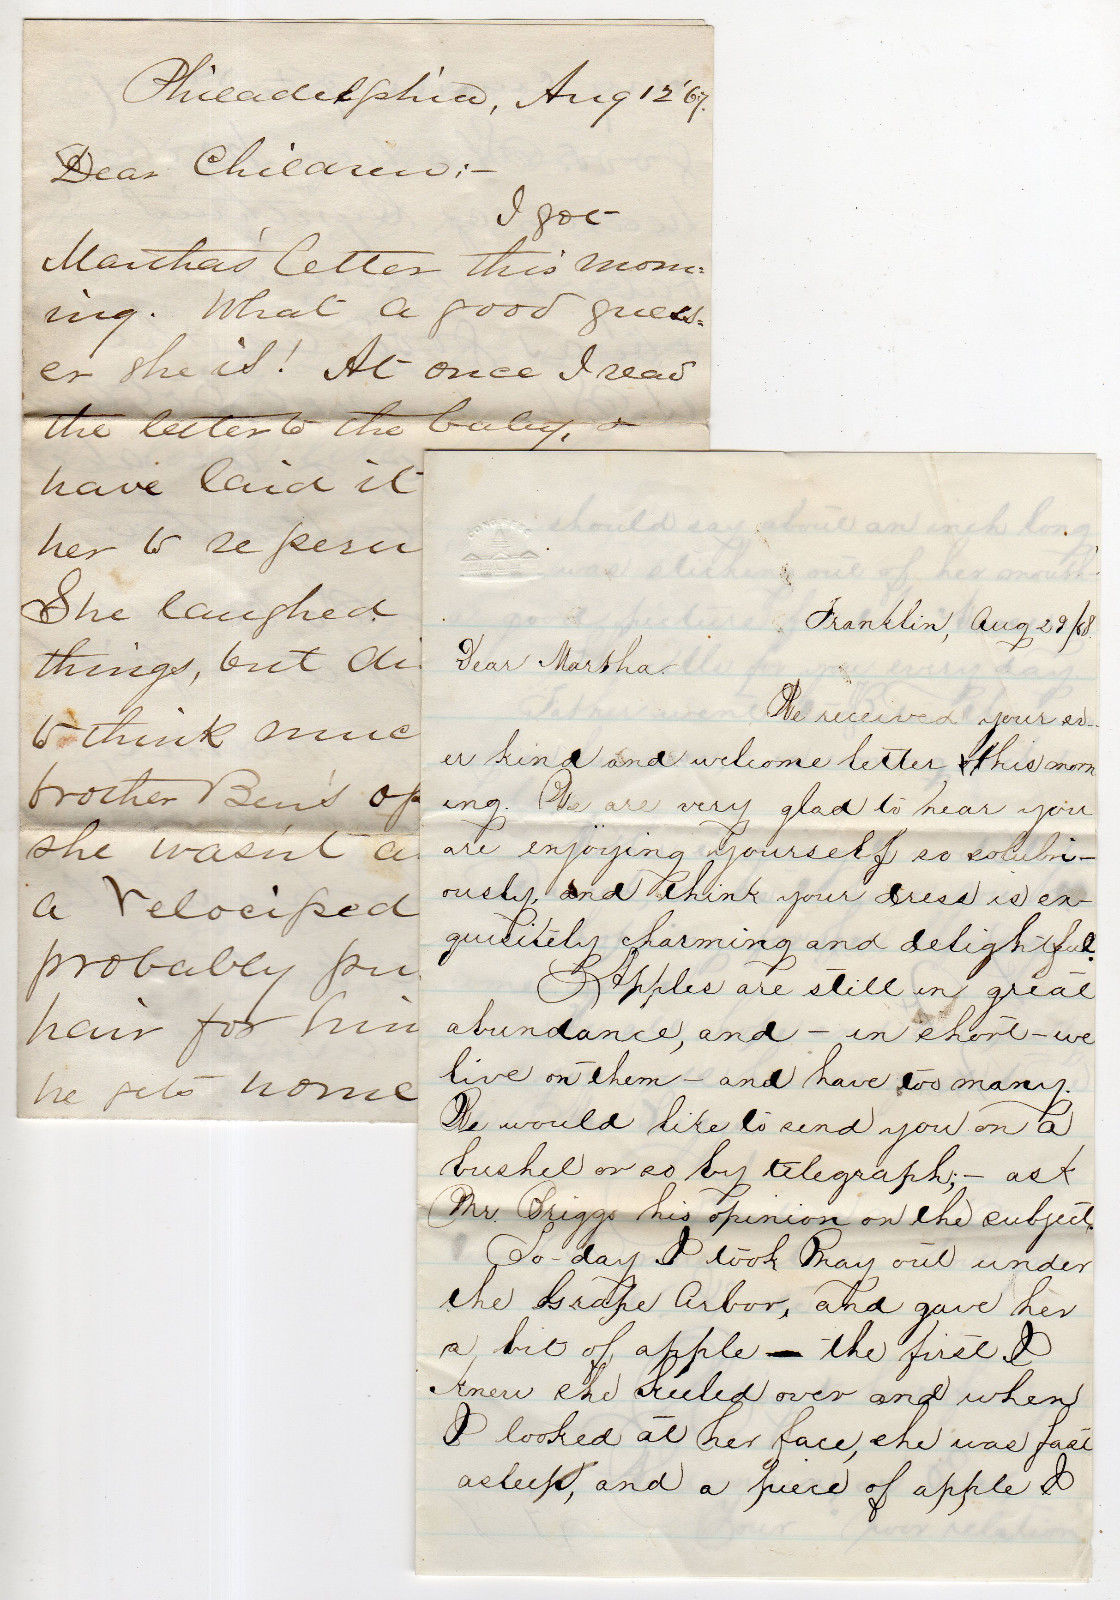 Philadelphia, Aug 12 '67.
Dear Children:-
I got
Martha's letter this morn=
ing. What a good guess=
er she is! At once I read
the letter to the baby, &
have laid it
her to re peru
She laughed
things, but di
to think muc
brother Ben's op
she wasn't a
a Velociped
probably pu
hair for him
he gets home
should say about an inch long
was sticking out of her mouth
Franklin, Aug 29/68.
Dear Martha.
We received your ev-
er kind and welcome letter this morn
ing. We are very glad to hear you
are enjoying yourself so salubri-
ously, and think your dress is ex-
quisitely charming and delightful.
Apples are still in great
abundance, and - in short - we
live on them - and have too many.
We would like to send you on a
bushel or so by telegraph;- ask
Mr. Briggs his opinion on the subject.
To-day I took May out under
the Grape Arbor, and gave her
a bit of apple - the first I
knew she keeled over and when
I looked at her face, she was fast
asleep, and a piece of apple I